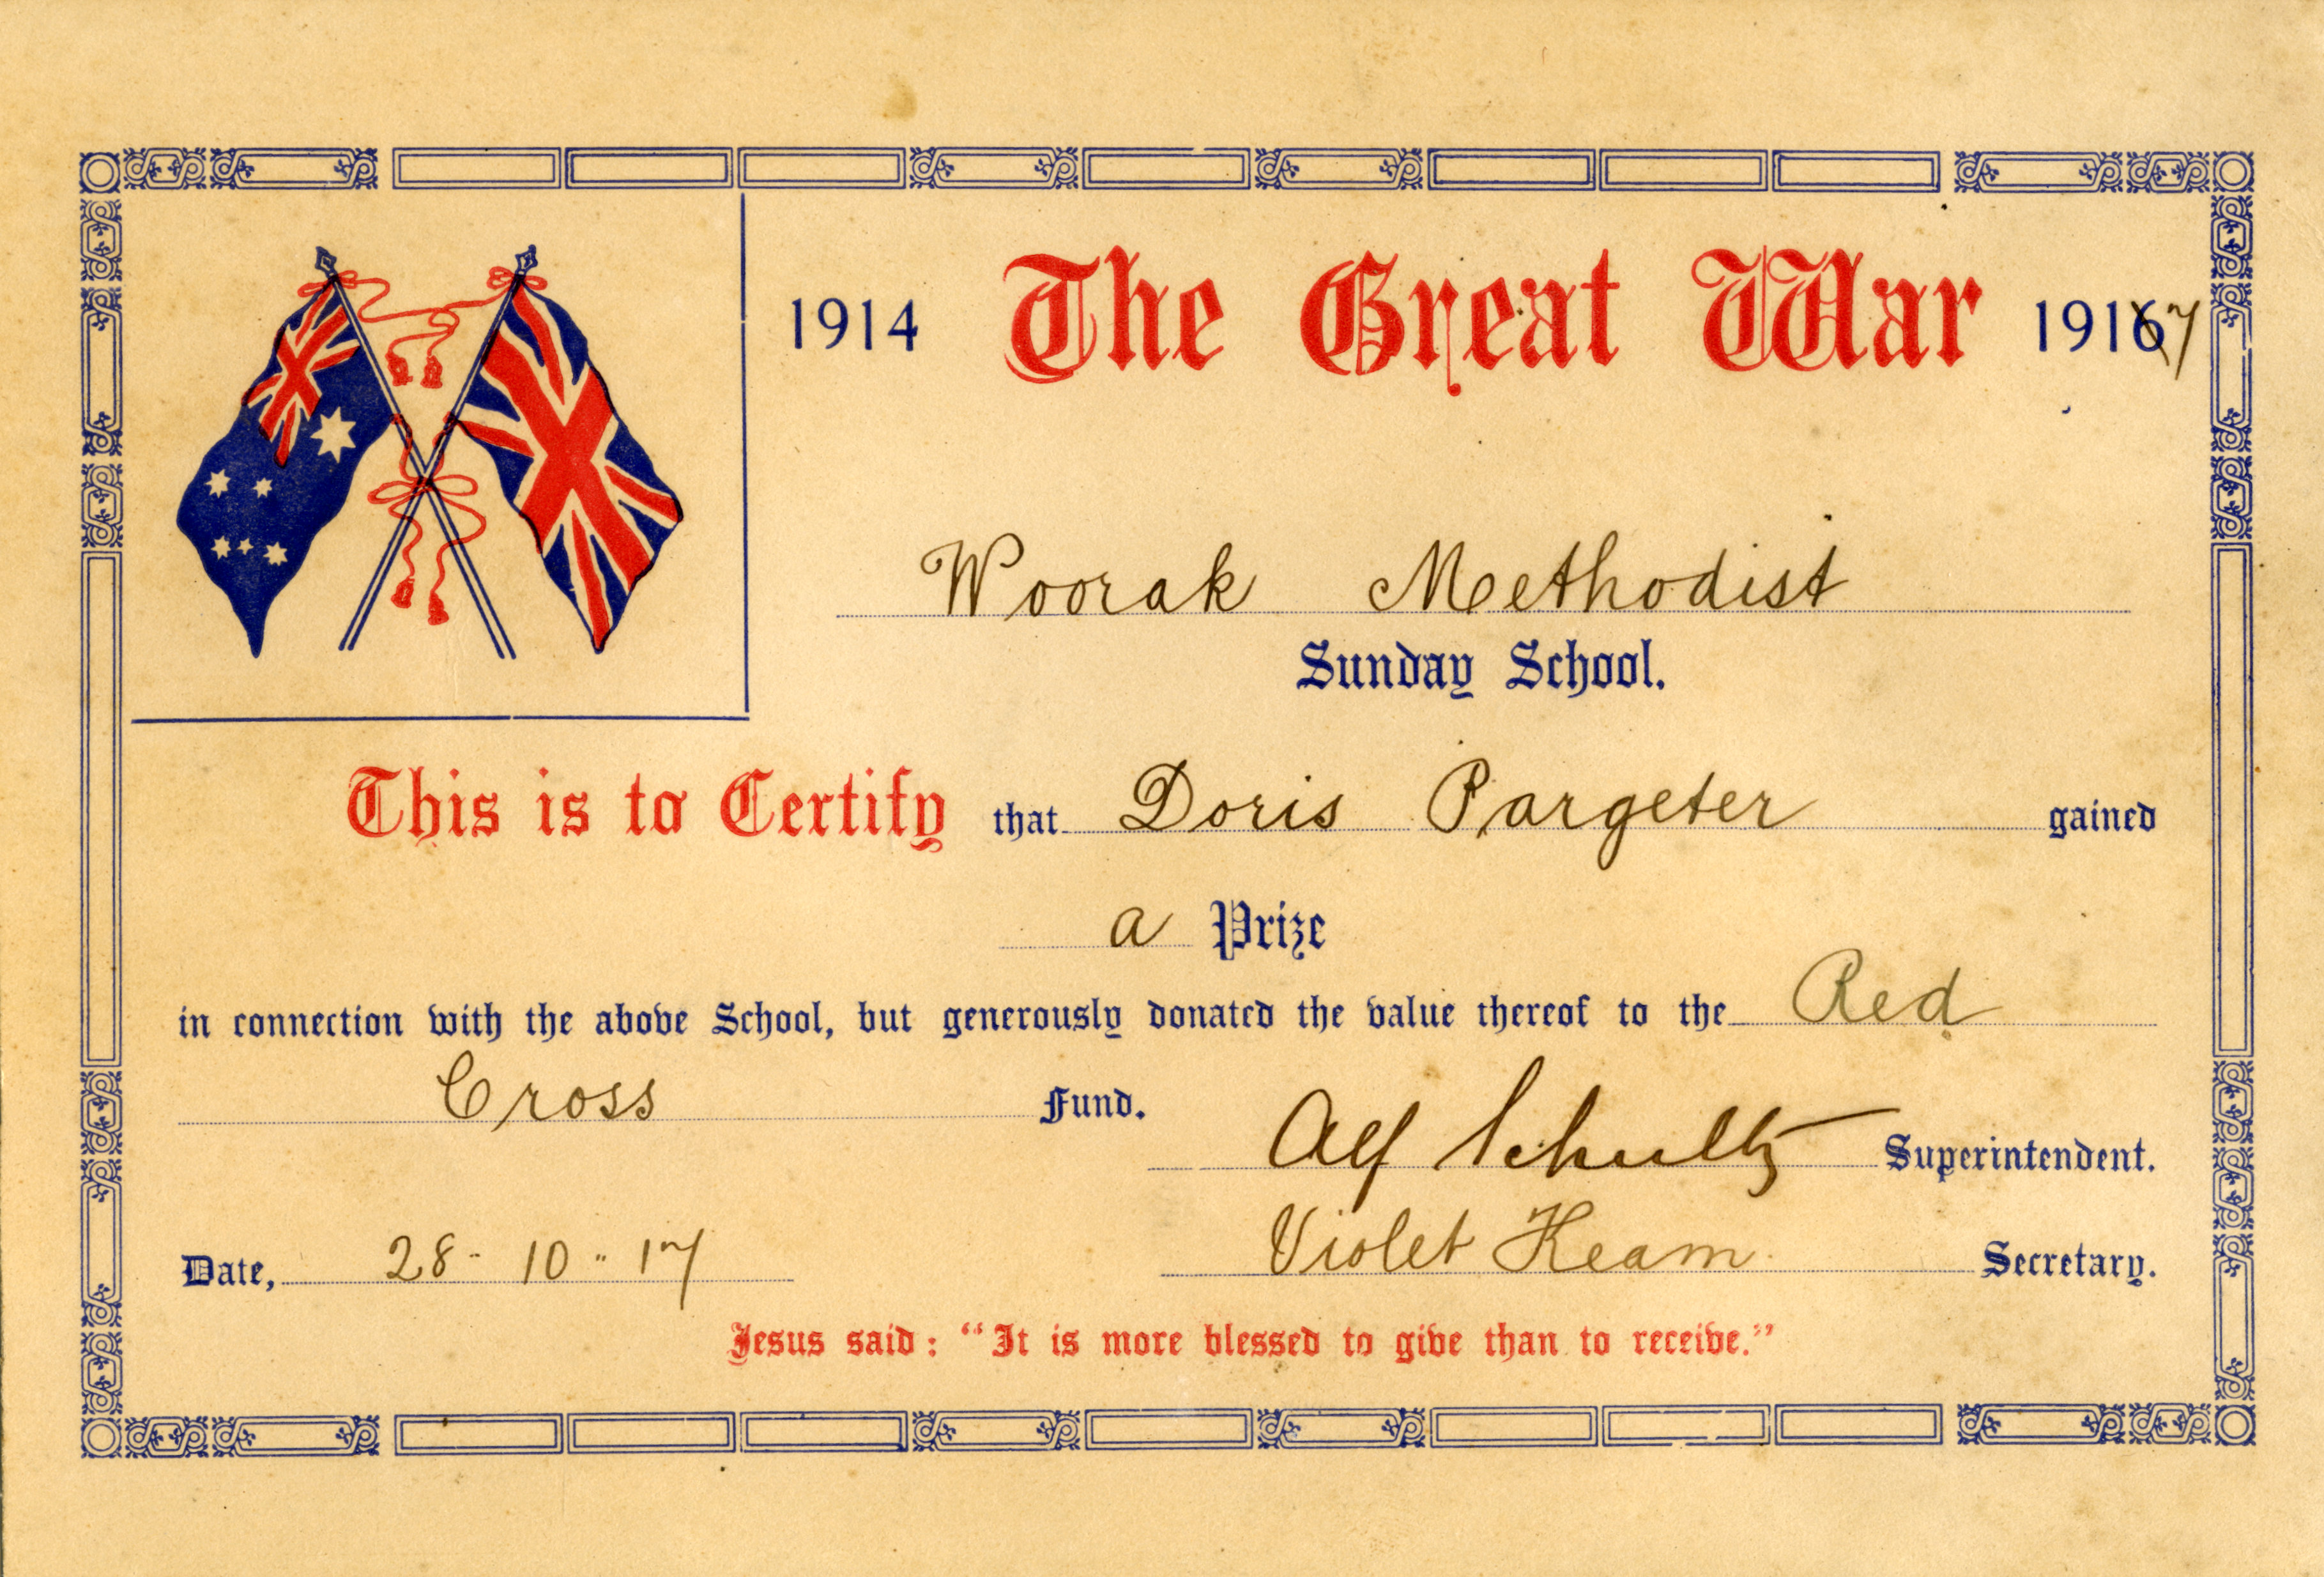 1914 The Great War 19167
Woorak Methodist
Sunday School.
This is to Certify that Doris Pargeter gained
a Prize
in connection with the above School, but generously donated the value thereof to the Red
Cross Fund.
Alf Schultz Superintendent.
Date, 28-10-17 Violet Keam Secretary.
Jesus said: "It is more blessed to give than to receive."